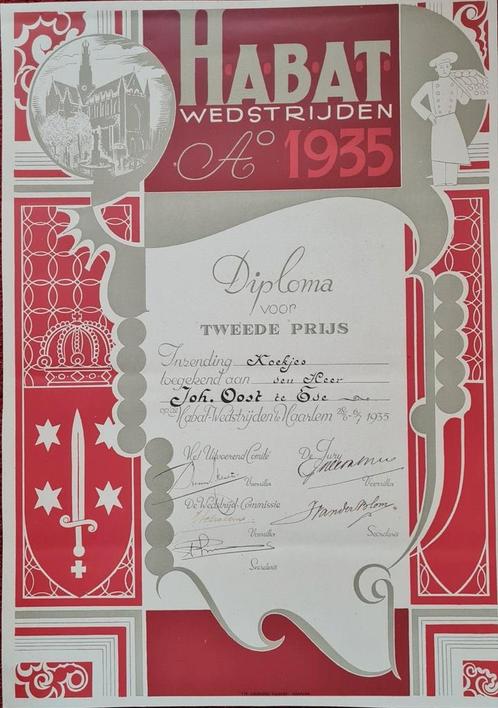 H.A.B.A.T.
WEDSTRIJDEN
Aº 1935
Diploma
voor
TWEEDE PRIJS
Inzending Koekjes
toegekend aan den Heer
Joh. Oost te Ede
op de
Habat-Wedstrijden te Haarlem 1935
Het Uitvoerend Comité De Jury
Voorzitter Voorzitter
De Wedstrijd-Commissie
J van der Blom
Voorzitter Secretaris
Secretaris